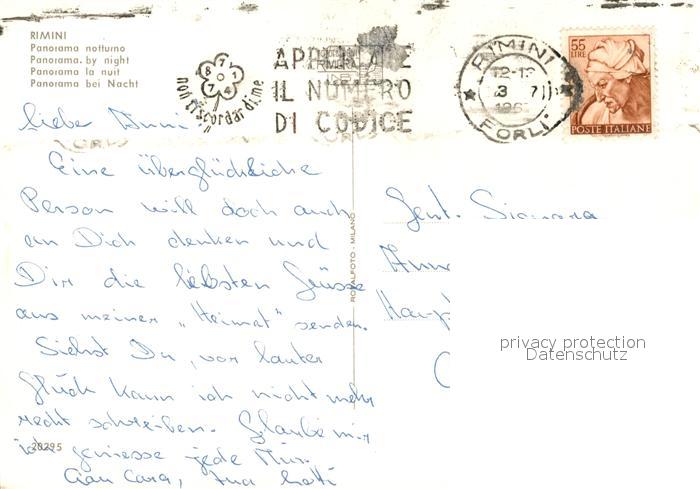 RIMINI
Panorama notturno
Panorama by night
Panorama la nuit
Panorama bei Nacht
non ti scordar di me
IL NUMERO
DI CODICE
RIMINI
12-13
FORLI
55
LIRE
POSTE ITALIANE
Liebe Anni!
Eine überglückliche
Person will doch auch
an Dich denken und
Dir die liebsten Grüsse
aus meiner „Heimat" senden.
Siehst Du, vor lauter
Glück kann ich nicht mehr
recht schreiben. Glaube mir
ich geniesse jede Min.
Ciao cara, tua
20295
ROTALFOTO - MILANO
Gent. Signora
privacy protection
Datenschutz